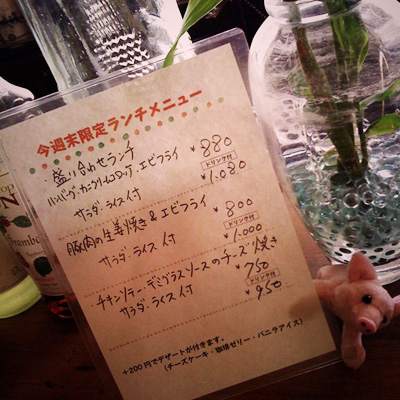 今週末限定ランチメニュー
盛り合わせランチ ¥880
ハンバーグ・カニクリームコロッケ・エビフライ ドリンク付
サラダ・ライス付 ¥1.080
豚肉の生姜焼き & エビフライ ¥800
ドリンク付
サラダ・ライス付 ¥1.000
チキンソテー・デミグラスソースのチーズ焼き
¥750
ドリンク付
サラダ・ライス付 ¥950
+200円でデザートが付きます。
(チーズケーキ・珈琲ゼリー・バニラアイス)